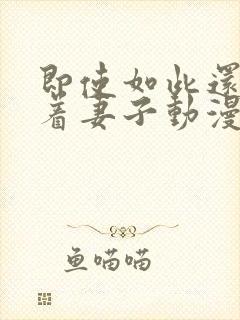 即使如此還
着妻子動漫
鱼喵喵